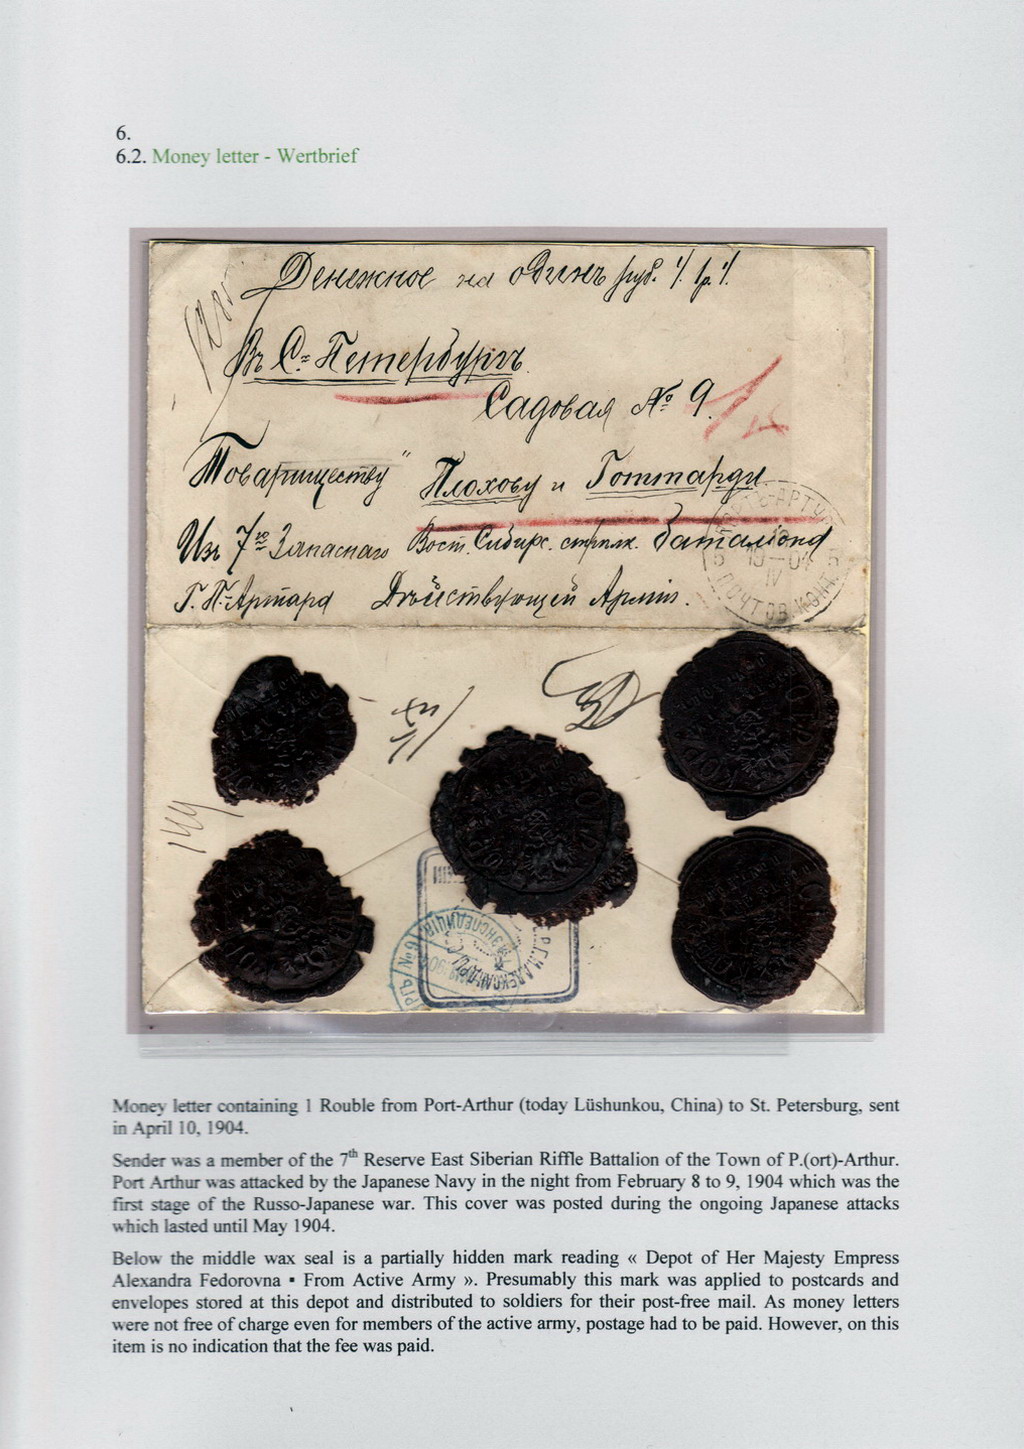 6.
6.2. Money letter - Wertbrief
Денежное на одинъ руб. 1/. 1 р. 1/.
Въ С=Петербургъ.
Садовая № 9.
Товариществу "Плохову и Готтарди
Изъ 7го Запаснаго Вост. Сибирс. стрѣлк. баталіона
Г. П-Артара Дѣйствующей Арміи.
ПОРТЪ-АРТУР
10-04
IV
ПОЧТОВ. КОНТ.
144
ЭКСПЕДИЦІЯ
Е.И.АЛЕКСАНДРЫ
Money letter containing 1 Rouble from Port-Arthur (today Lüshunkou, China) to St. Petersburg, sent
in April 10, 1904.
Sender was a member of the 7th Reserve East Siberian Riffle Battalion of the Town of P.(ort)-Arthur.
Port Arthur was attacked by the Japanese Navy in the night from February 8 to 9, 1904 which was the
first stage of the Russo-Japanese war. This cover was posted during the ongoing Japanese attacks
which lasted until May 1904.
Below the middle wax seal is a partially hidden mark reading « Depot of Her Majesty Empress
Alexandra Fedorovna ▪ From Active Army ». Presumably this mark was applied to postcards and
envelopes stored at this depot and distributed to soldiers for their post-free mail. As money letters
were not free of charge even for members of the active army, postage had to be paid. However, on this
item is no indication that the fee was paid.